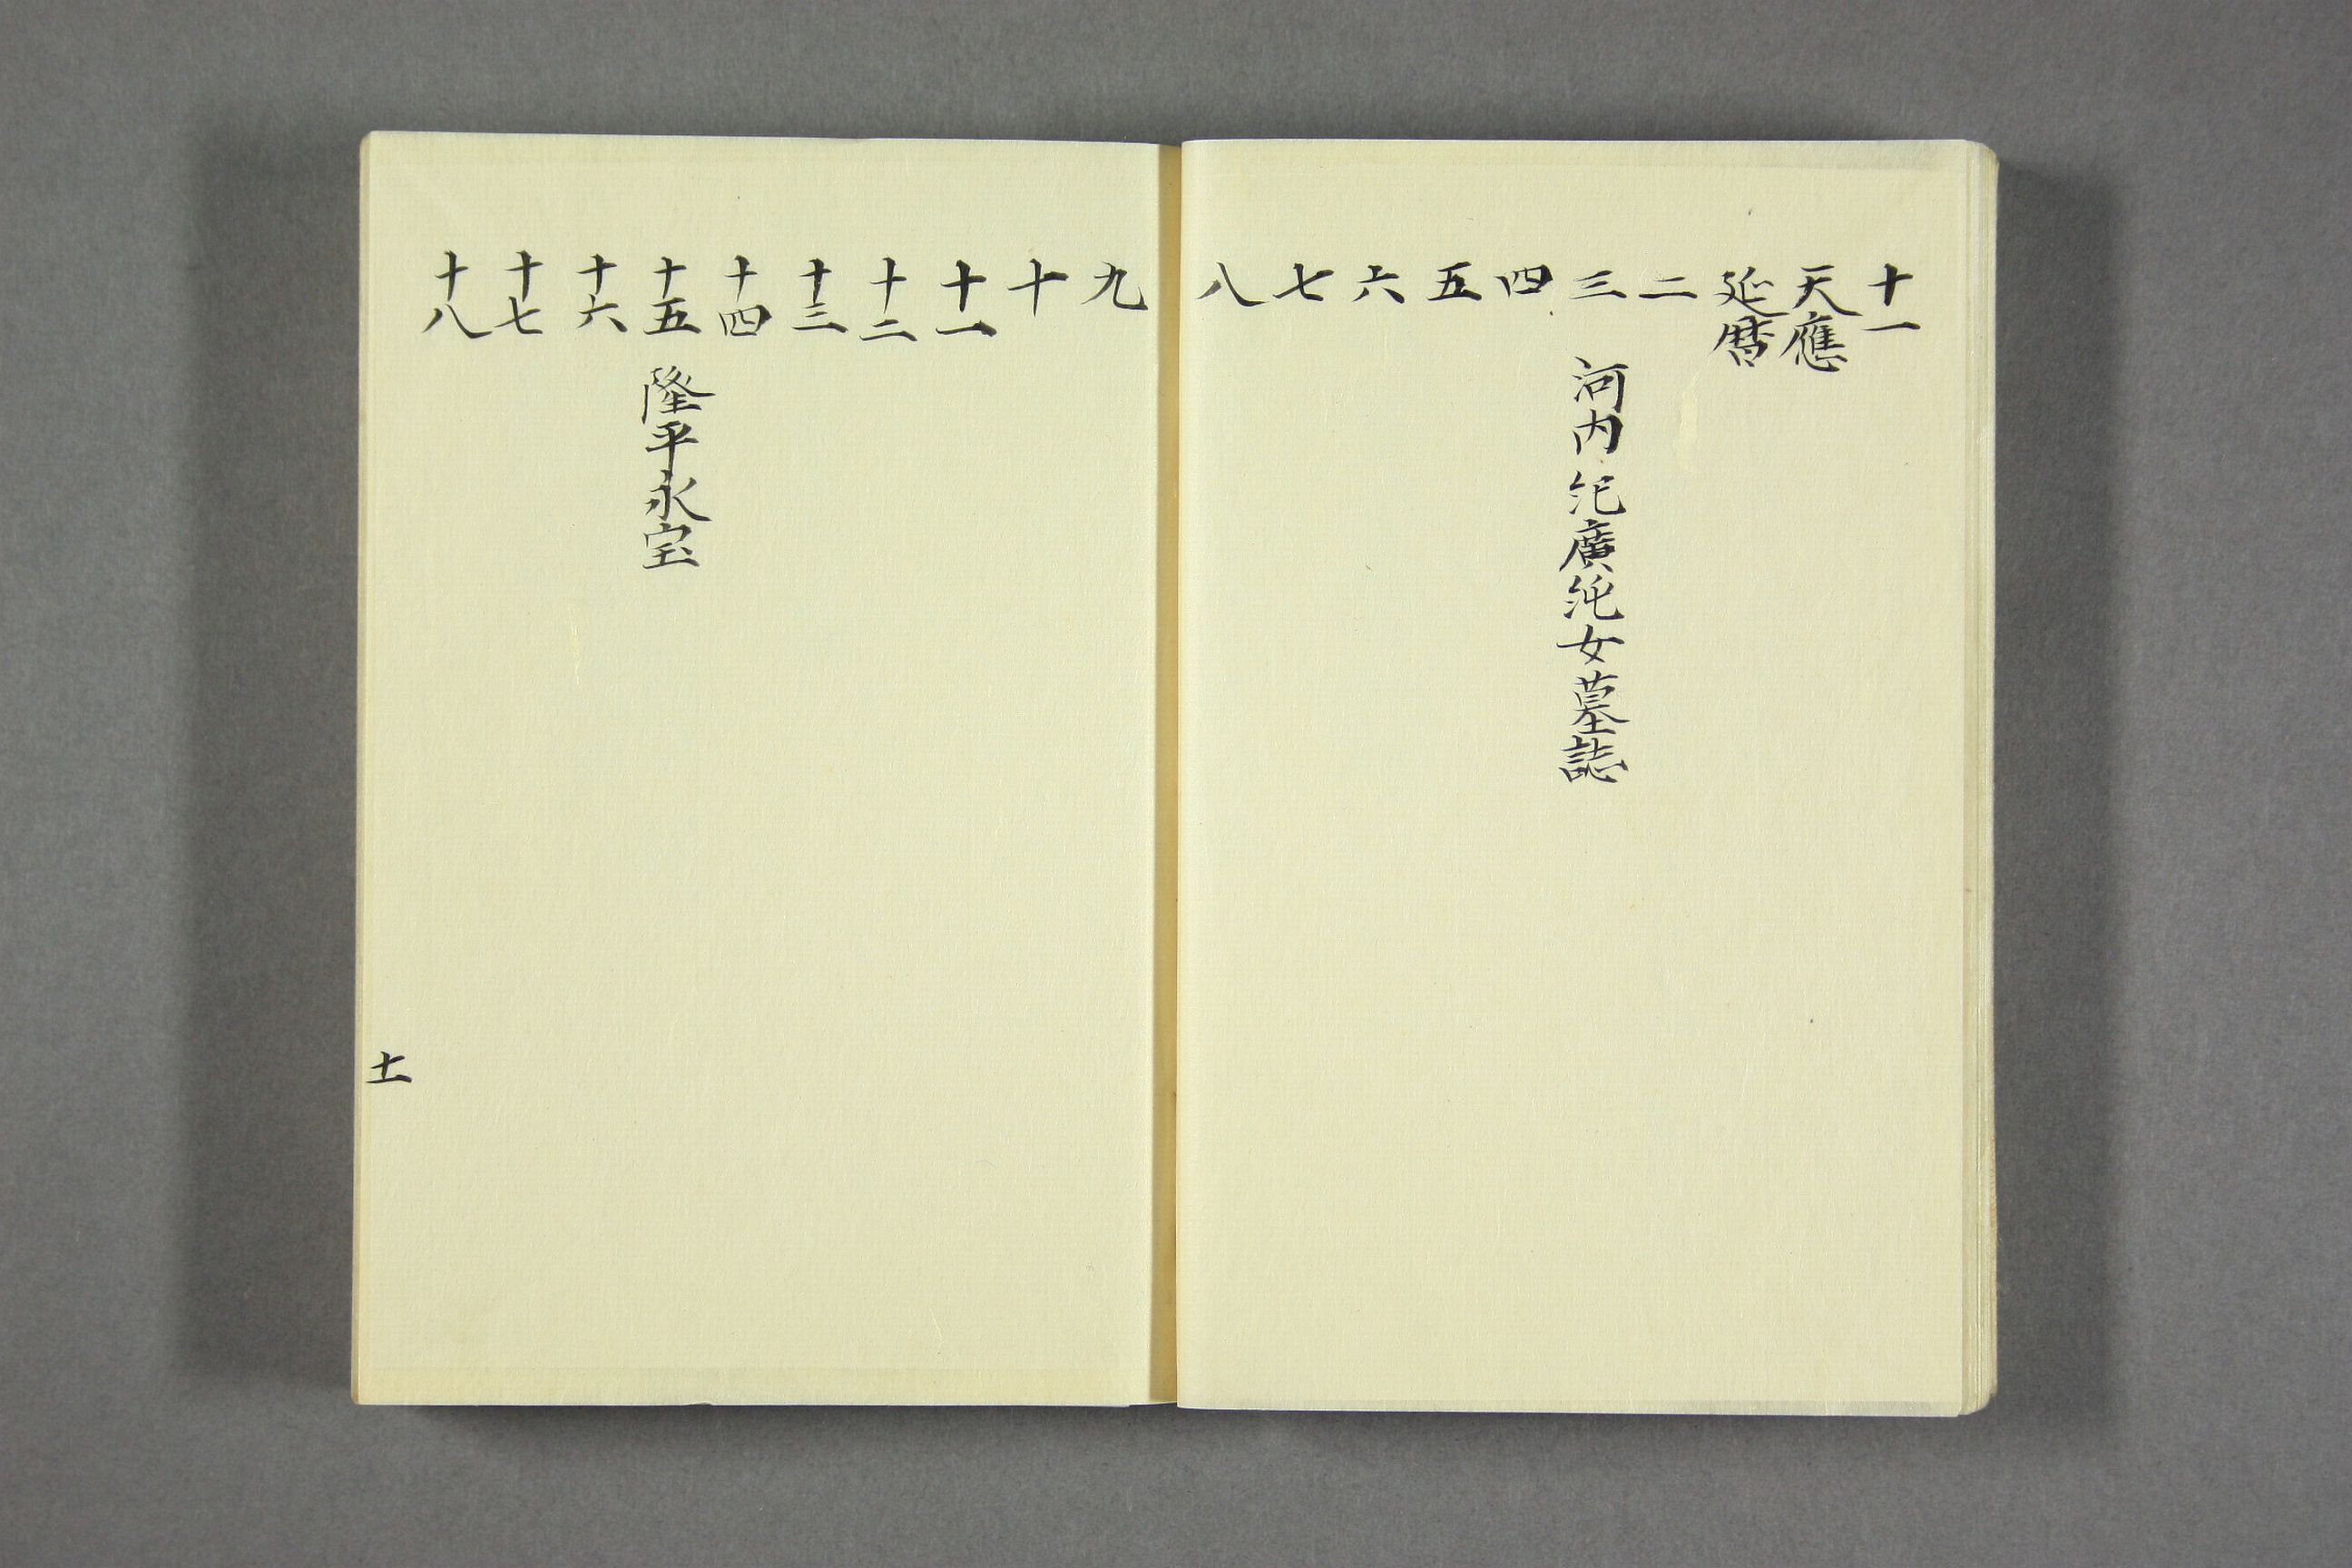 十一
天應
延暦
二
三 河内 紀廣純女墓誌
四
五
六
七
八
九
十
十一
十二
十三
十四
十五 隆平永宝
十六
十七
十八
十一